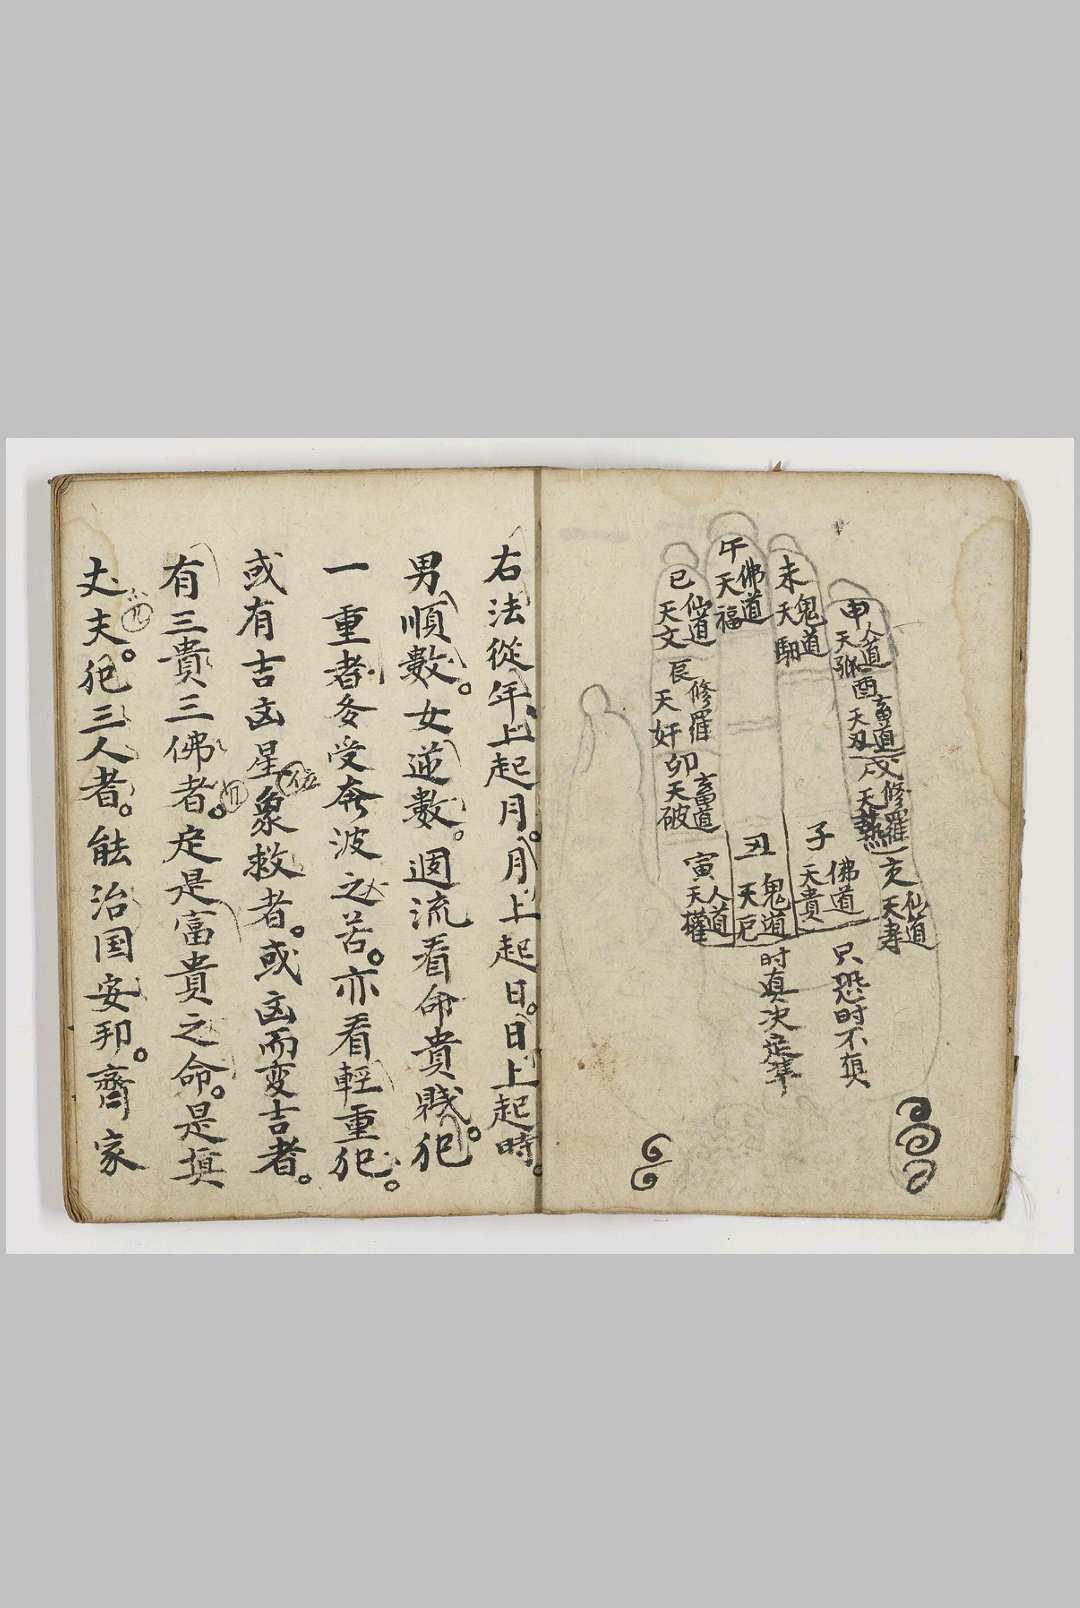 午
佛道
天福
未
鬼道
天馹
申
人道
天孤
酉
畜道
天刃
戌
修羅
天藝
亥
仙道
天寿
巳
仙道
天文
辰
修羅
天奸
卯
畜道
天破
寅
人道
天權
丑
鬼道
天厄
子
佛道
天貴
只恐时不真
时真决定準
右法從年上起月。月上起日。日上起時。
男順數。女逆數。週流看命貴賤。犯
一重者。多受奔波之苦。亦看輕重犯。
或有吉凶星象救者。或凶而変吉者。
位
有三貴三佛者。定是富貴之命。是真
丈夫。犯三人者。能治国安邦。齊家